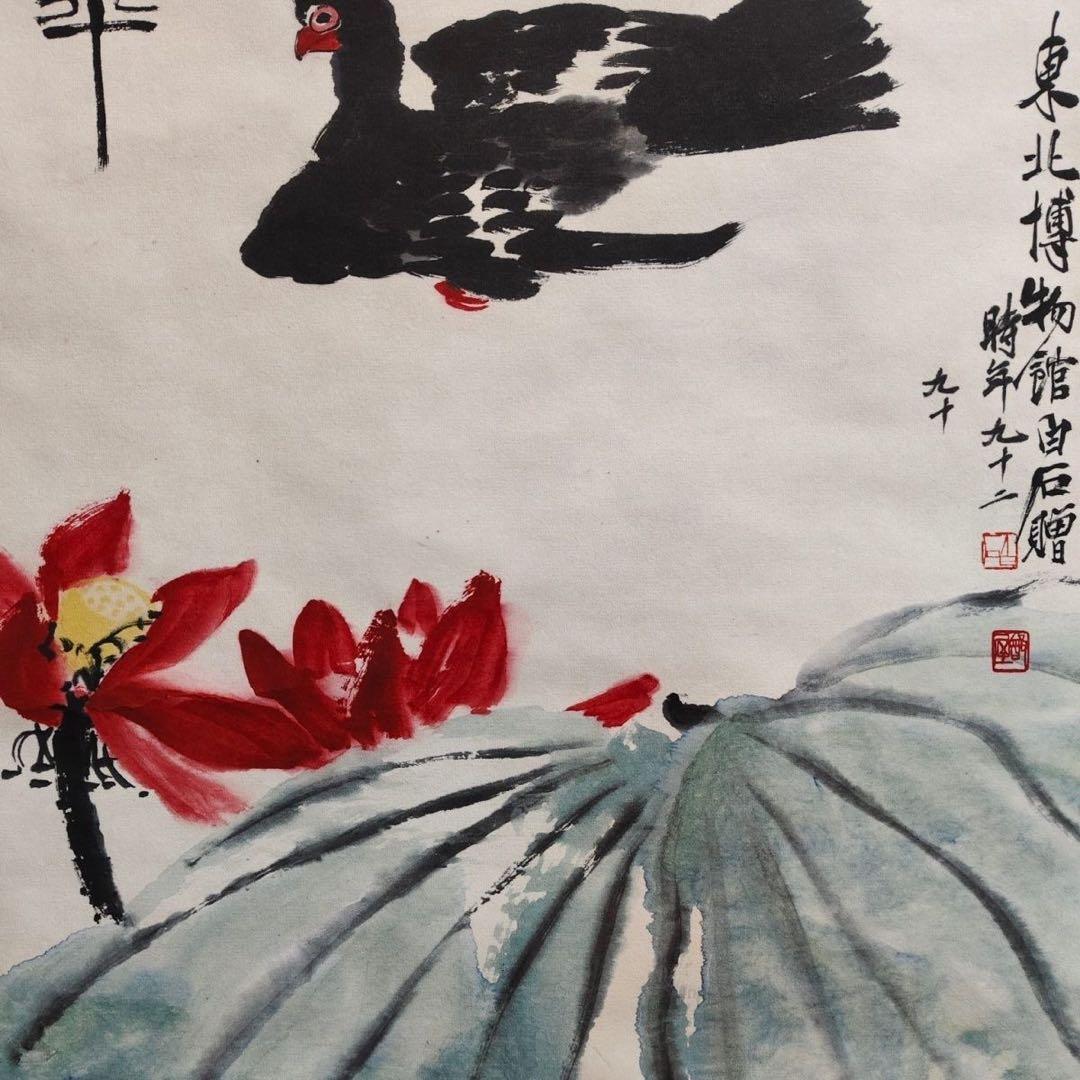 東北博物館白石贈
時年九十二
九十